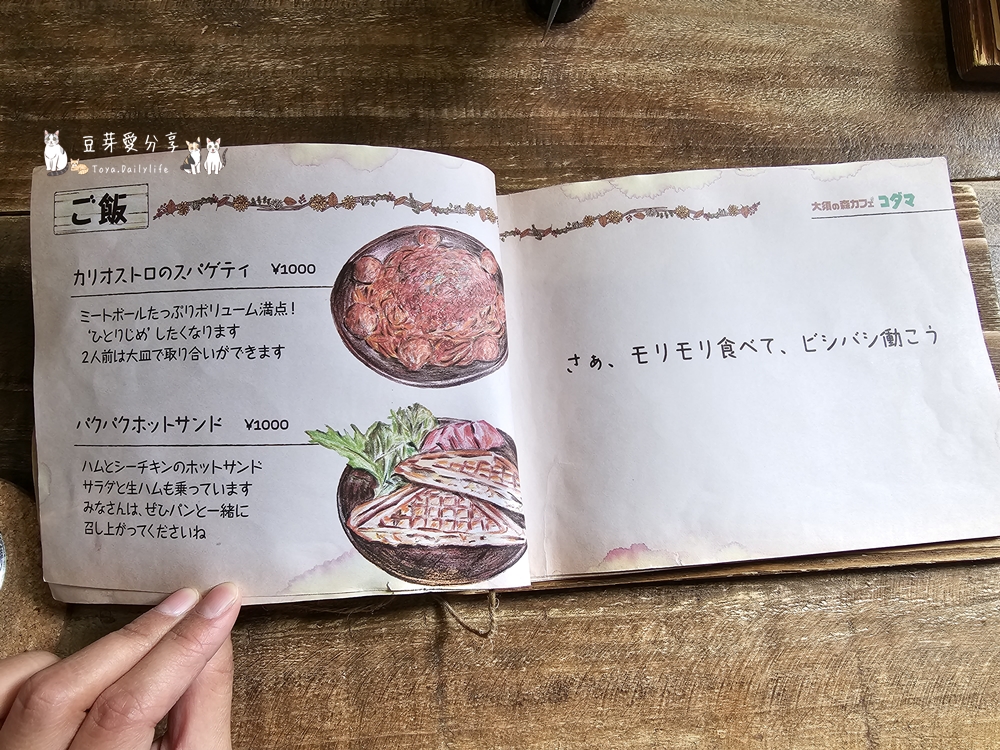 豆芽愛分享
Toya.Dailylife
ご飯
カリオストロのスパゲティ ¥1000
ミートボールたっぷりボリューム満点！
‘ひとりじめ’したくなります
2人前は大皿で取り合いができます
パクパクホットサンド ¥1000
ハムとシーチキンのホットサンド
サラダと生ハムも乗っています
みなさんは、ぜひパンと一緒に
召し上がってくださいね
大須の森カフェ コダマ
さぁ、モリモリ食べて、ビシバシ働こう